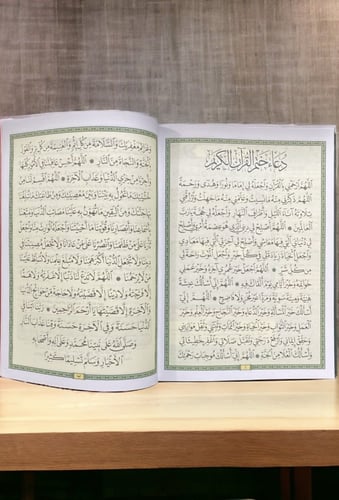 دعاء ختم القرآن الكريم
اللهم ارحمني بالقرآن واجعله لي إماما ونورا وهدى ورحمة
اللهم ذكرني منه ما نسيت وعلمني منه ما جهلت وارزقني
تلاوته آناء الليل وأطراف النهار واجعله لي حجة يا رب
العالمين * اللهم أصلح لي ديني الذي هو عصمة أمري وأصلح
لي دنياي التي فيها معاشي وأصلح لي آخرتي التي فيها معادي
واجعل الحياة زيادة لي في كل خير واجعل الموت راحة لي
من كل شر * اللهم اجعل خير عمري آخره وخير عملي
خواتمه وخير أيامي يوم ألقاك فيه * اللهم إني أسألك عيشة
هنية وميتة سوية ومردا غير مخز ولا فاضح * اللهم إني
أسألك خير المسألة وخير الدعاء وخير النجاح وخير العلم وخير
العمل وخير الثواب وخير الحياة وخير الممات وثبتني وثقل موازيني
وحقق إيماني وارفع درجتي وتقبل صلاتي واغفر خطيئاتي
وأسألك العلا من الجنة * اللهم إني أسألك موجبات رحمتك
وعزائم مغفرتك والسلامة من كل إثم والغنيمة من كل بر والفوز
بالجنة والنجاة من النار * اللهم أحسن عاقبتنا في الأمور كلها
وأجرنا من خزي الدنيا وعذاب الآخرة * اللهم اقسم لنا من
خشيتك ما تحول به بيننا وبين معصيتك ومن طاعتك ما تبلغنا
بها جنتك ومن اليقين ما تهون به علينا مصائب الدنيا ومتعنا
بأسماعنا وأبصارنا وقوتنا ما أحييتنا واجعله الوارث منا واجعل
ثأرنا على من ظلمنا وانصرنا على من عادانا ولا تجعل مصيبتنا في
ديننا ولا تجعل الدنيا أكبر همنا ولا مبلغ علمنا ولا تسلط علينا
من لا يرحمنا * اللهم لا تدع لنا ذنبا إلا غفرته ولا هما
إلا فرجته ولا دينا إلا قضيته ولا حاجة من حوائج الدنيا
والآخرة إلا قضيتها يا أرحم الراحمين * ربنا آتنا في
الدنيا حسنة وفي الآخرة حسنة وقنا عذاب النار
وصلى الله على نبينا محمد وعلى آله وأصحابه
الأخيار وسلم تسليما كثيرا